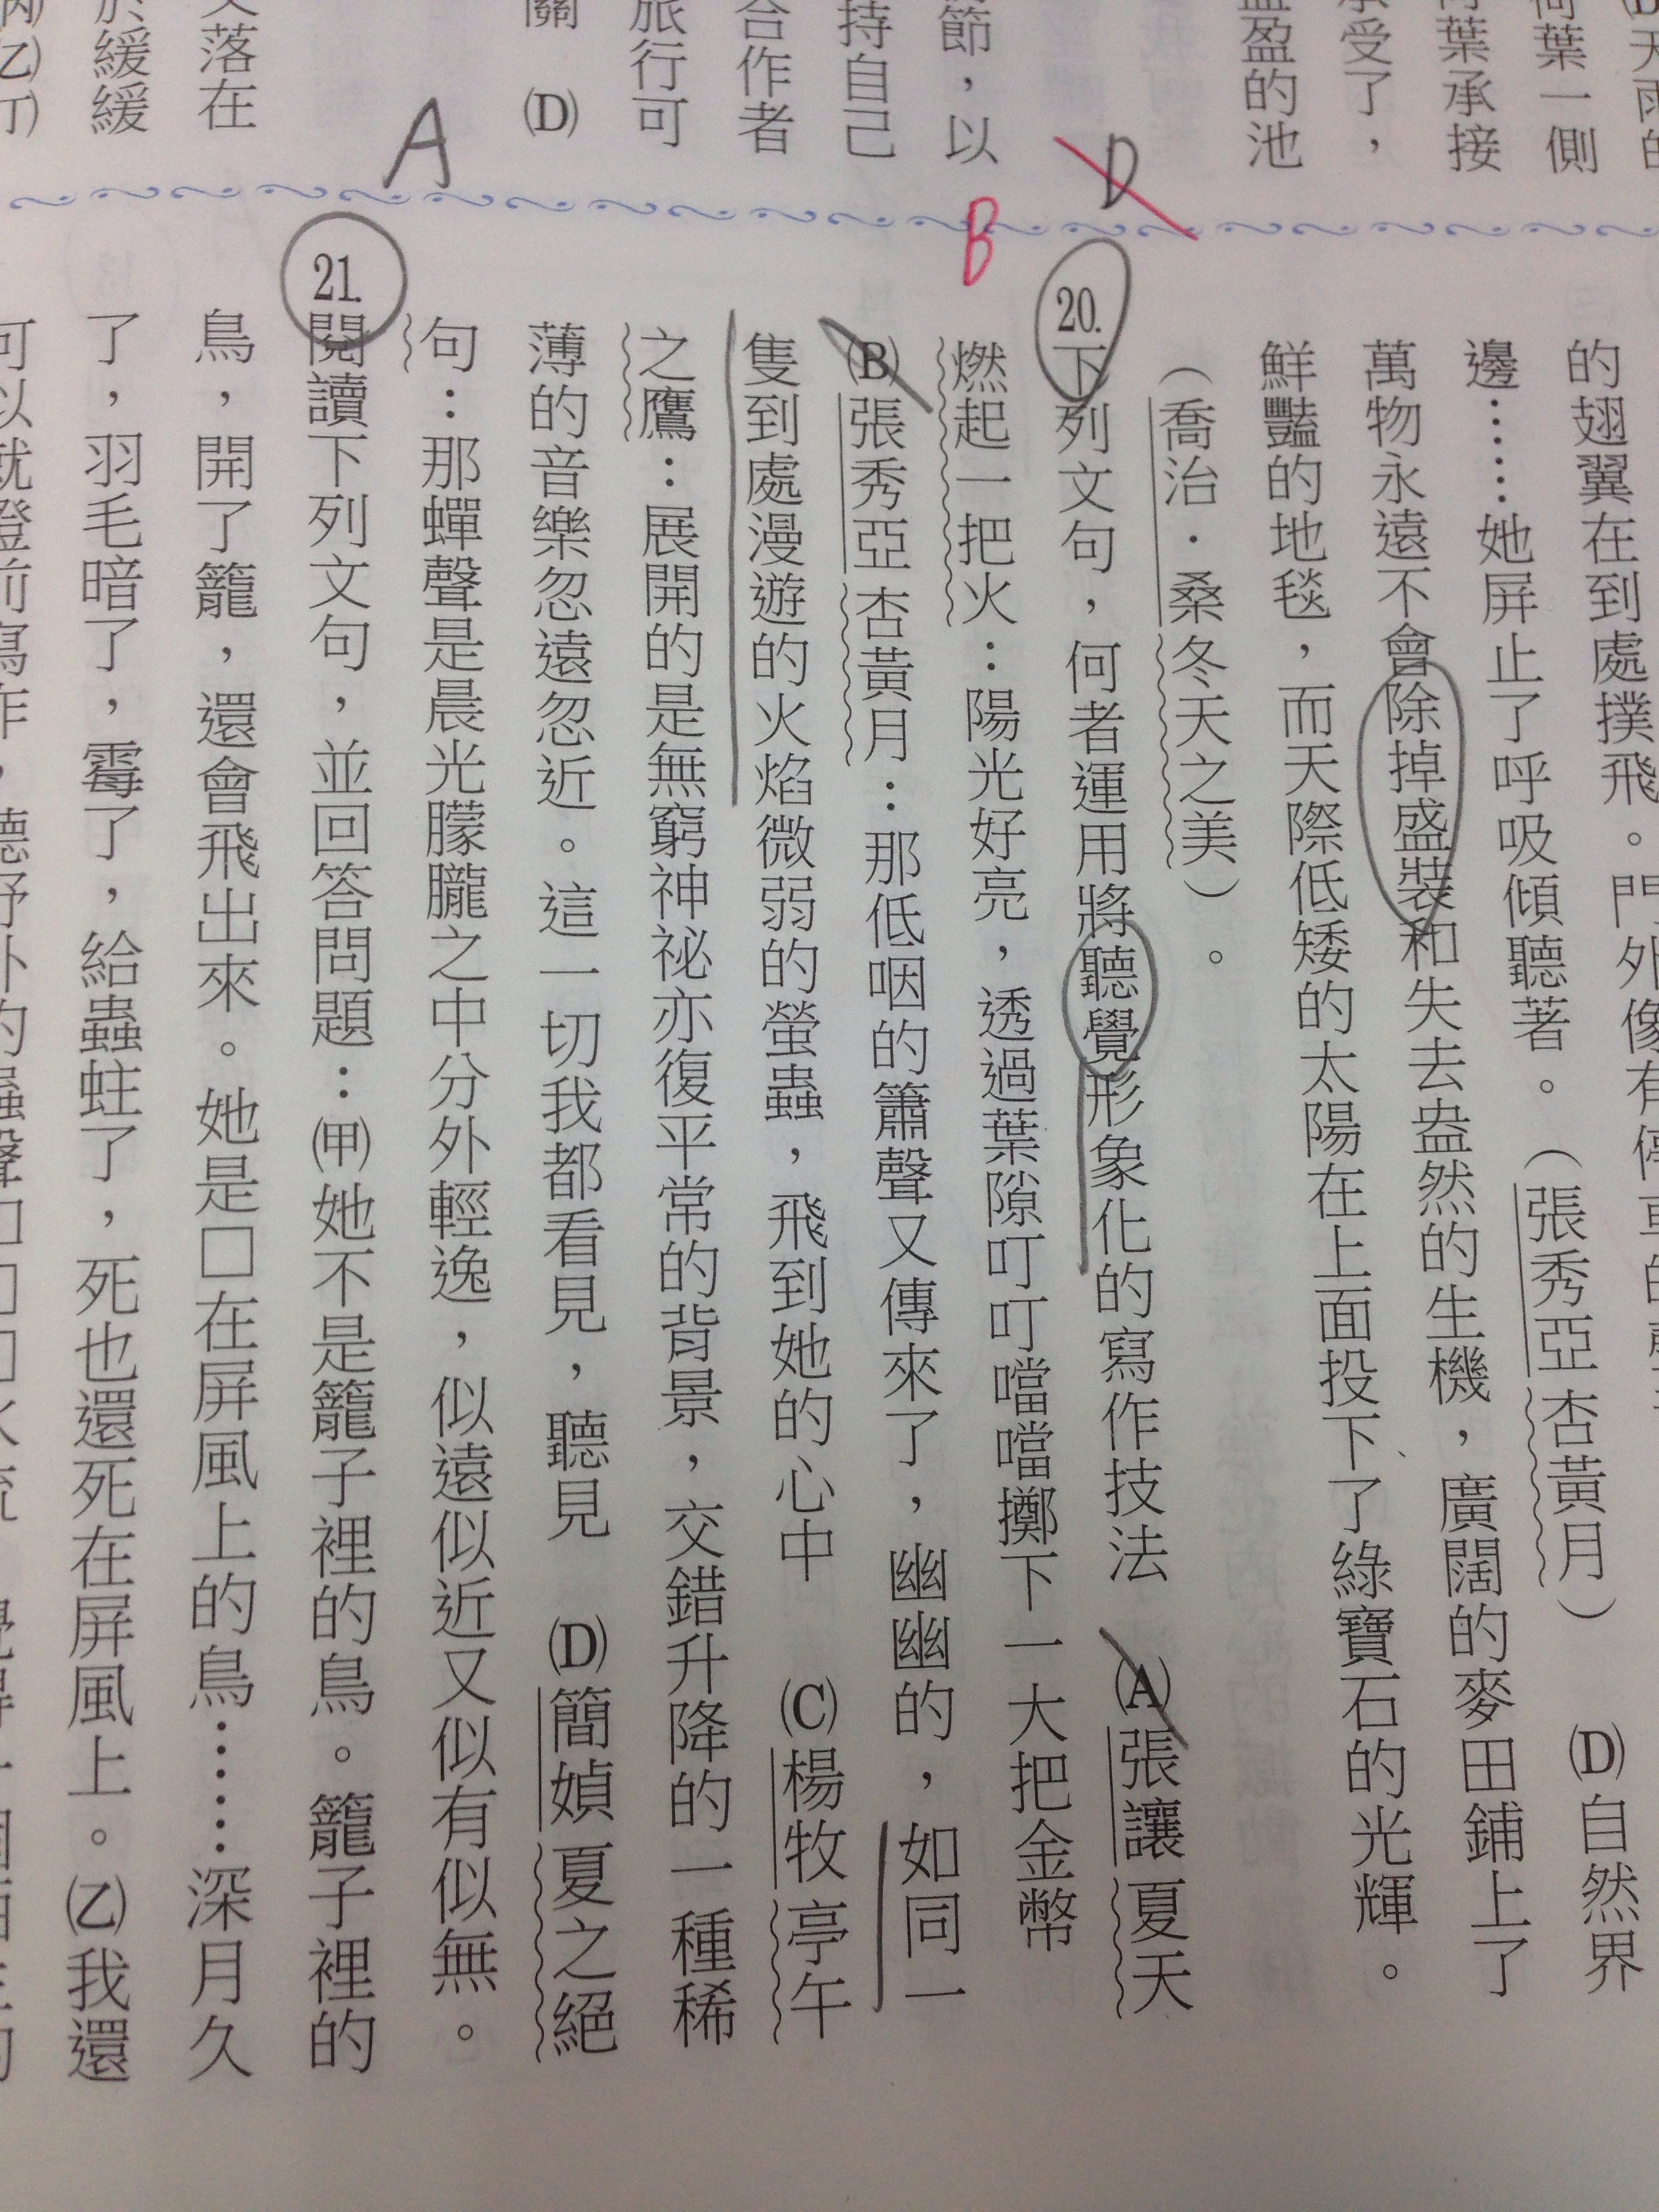 (D)天雨的
荷葉一側
荷葉承接
承受了，
盈盈的池
D
節，以
持自己
合作者
旅行可
關 (D)
A
又落在
於緩緩
丙)(乙)(丁)
的翅翼在到處撲飛。門外像有停車的
邊……她屏止了呼吸傾聽著。（張秀亞杏黃月） (D)自然界
萬物永遠不會除掉盛裝和失去盎然的生機，廣闊的麥田鋪上了
鮮豔的地毯，而天際低矮的太陽在上面投下了綠寶石的光輝。
（喬治．桑冬天之美）。
B
20.下列文句，何者運用將聽覺形象化的寫作技法 (A)張讓夏天
燃起一把火：陽光好亮，透過葉隙叮叮噹噹擲下一大把金幣
(B)張秀亞杏黃月：那低咽的簫聲又傳來了，幽幽的，如同一
隻到處漫遊的火焰微弱的螢蟲，飛到她的心中 (C)楊牧亭午
之鷹：展開的是無窮神祕亦復平常的背景，交錯升降的一種稀
薄的音樂忽遠忽近。這一切我都看見，聽見 (D)簡媜夏之絕
句：那蟬聲是晨光朦朧之中分外輕逸，似遠似近又似有似無。
21.閱讀下列文句，並回答問題：(甲)她不是籠子裡的鳥。籠子裡的
鳥，開了籠，還會飛出來。她是□在屏風上的鳥……深月久
了，羽毛暗了，霉了，給蟲蛀了，死也還死在屏風上。(乙)我還
可以就燈前寫作，聽野外的蟲聲□□□水流，覺得